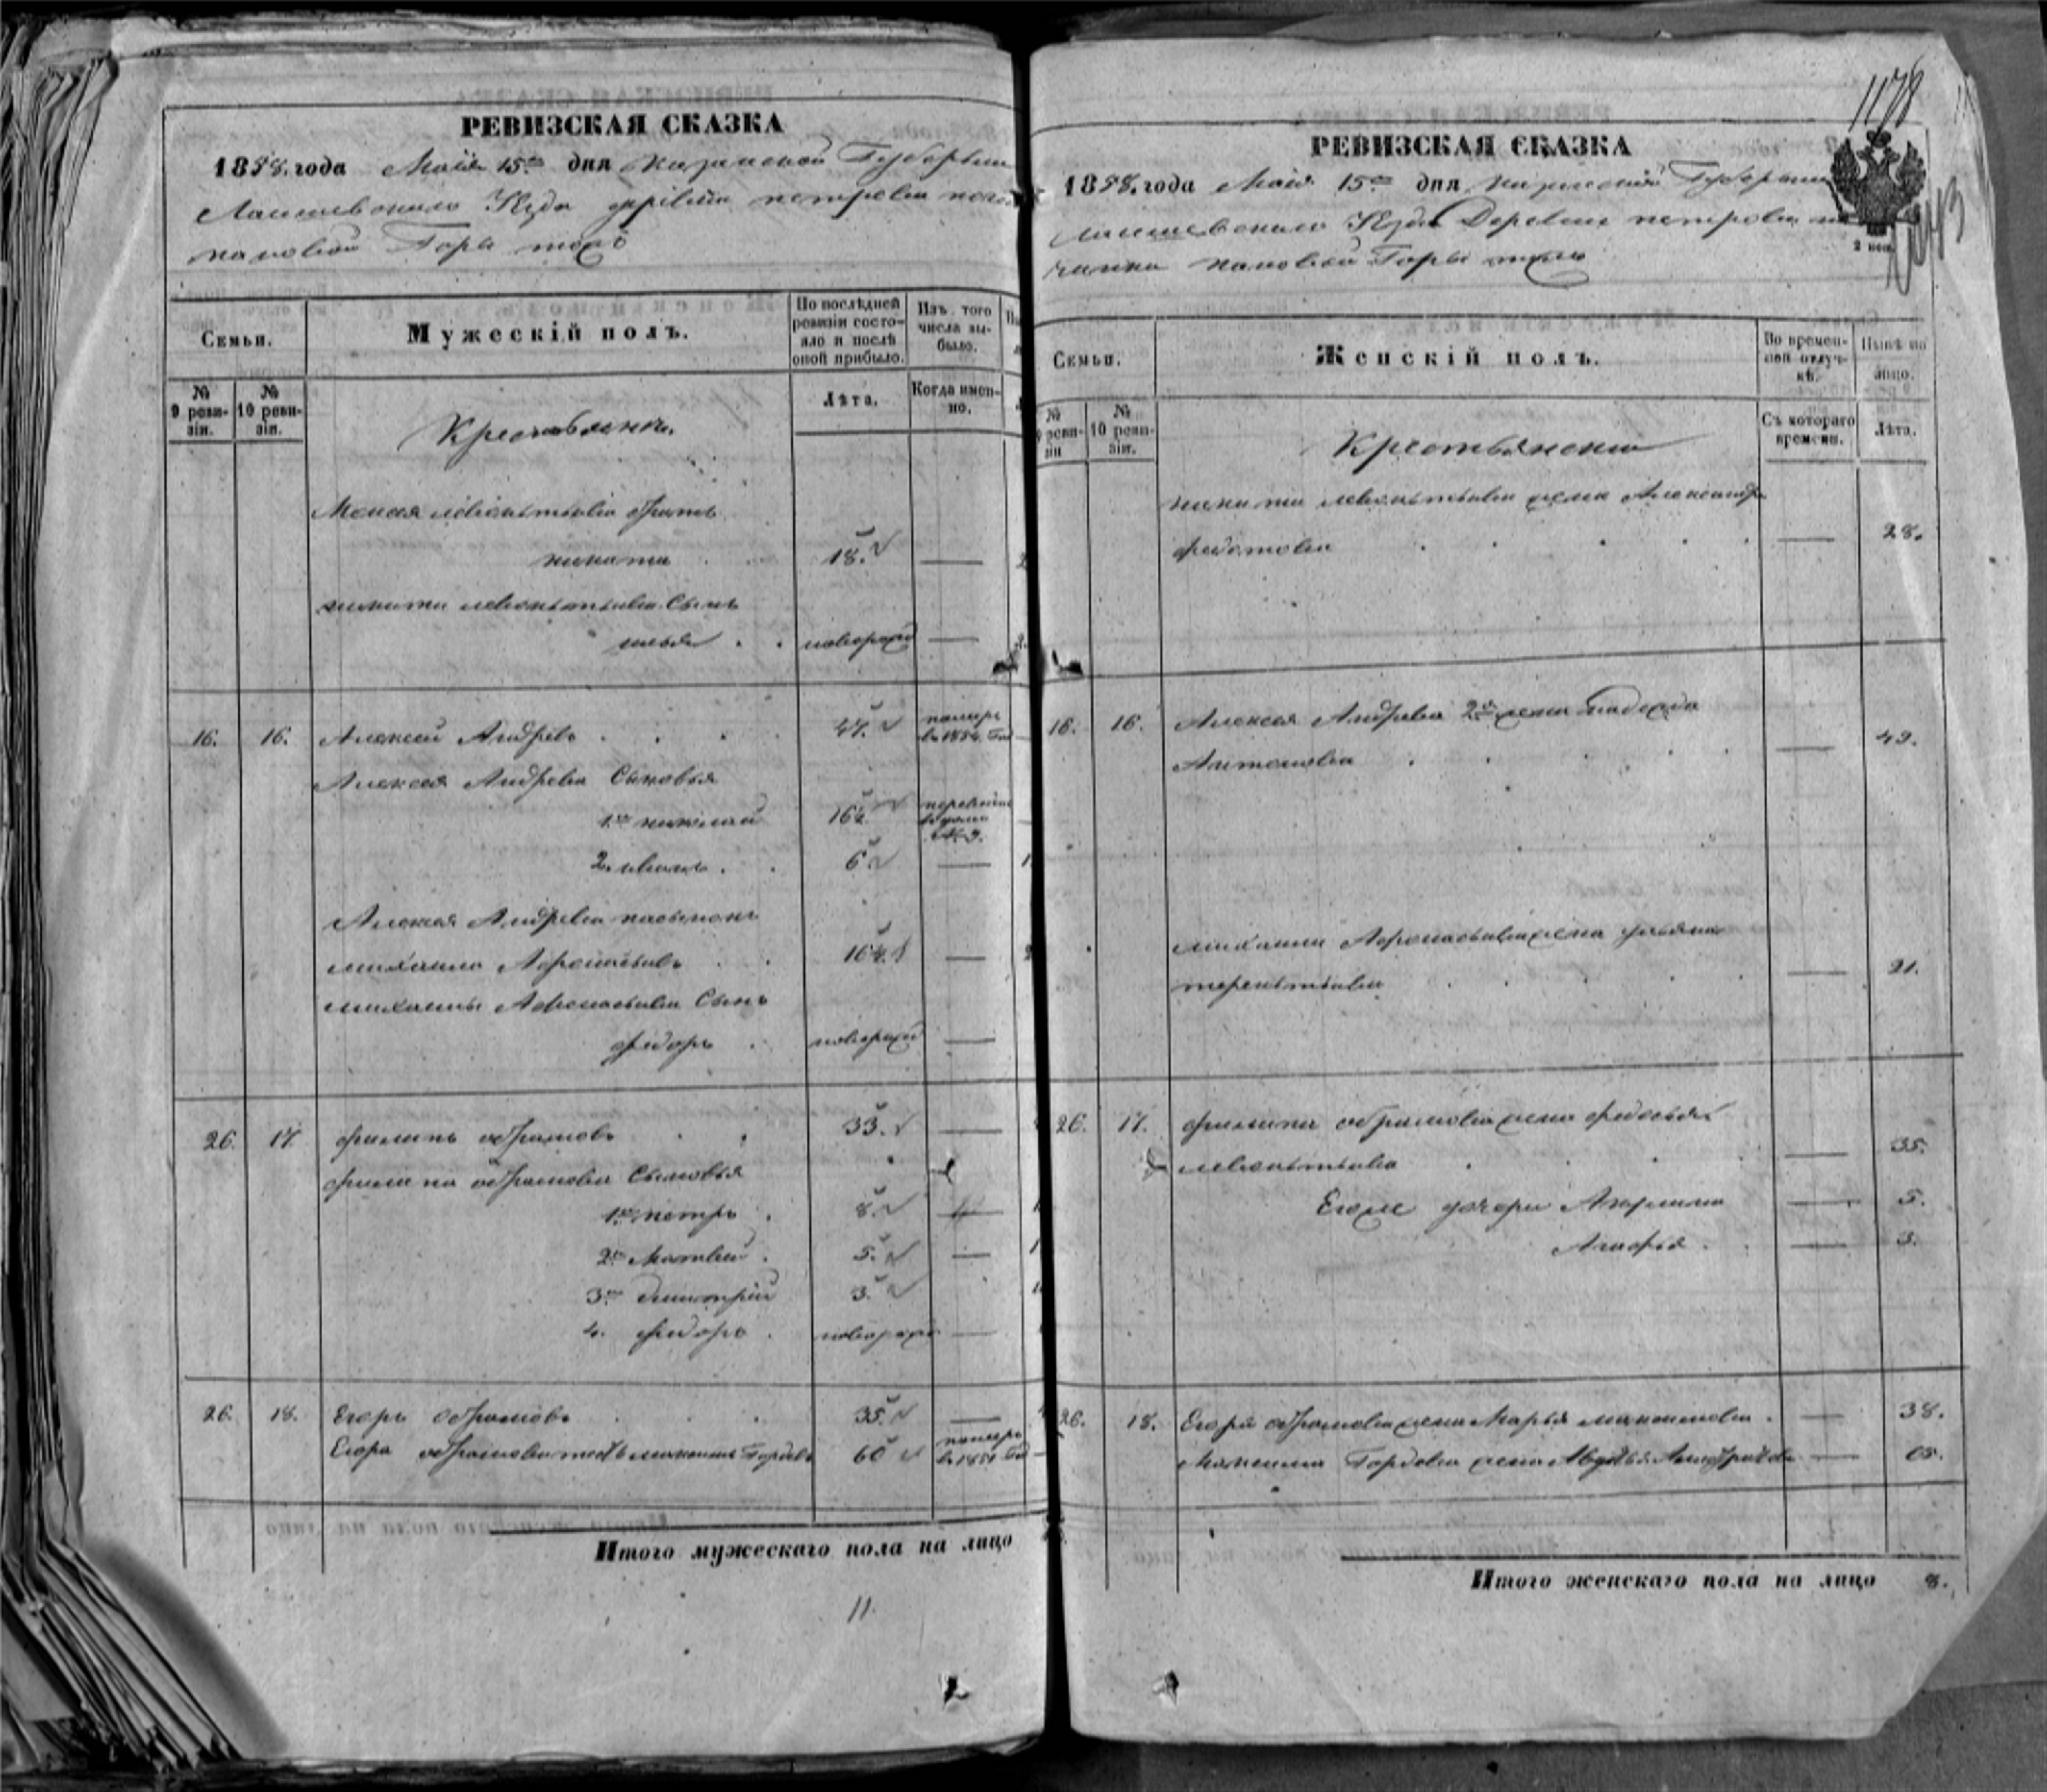 РЕВИЗСКАЯ СКАЗКА
1858. года Маія 15го дня Казанской Губерніи
Лаишевскаго Уѣзда деревни петровки
пановой Горы тожъ
Семьи.
Мужескій полъ.
По послѣдней ревизіи состояло и послѣ оной прибыло.
Изъ того числа выбыло.
№ 9 ревизіи.
№ 10 ревизіи.
Крестьяне.
Лѣта.
Когда именно.
леонтьева братъ
никита 18.
никиты леонтьева Сынъ
илья новорожд
16. 16. Алексей Андревъ 47. померъ в 1854. Год
Алексея Андрева Сыновья
1й николай 16½
№ 9.
2. иванъ 6
Алексея Андрева пасынокъ
михаила Афонасьевъ 16½
михаилы Афонасьева Сынъ
федоръ новорожд
26. 17. филипъ абрамовъ 33.
филипа абрамова Сыновья
1й петръ 8.
2й Матвей 5.
3й дмитрій 3.
4. федоръ новорожд
26. 18. Егоръ абрамовъ 35.
Егора абрамова тесть максимъ Гордѣевъ 60 померъ в 1851 Год
Итого мужескаго пола на лицо
11.
1178
РЕВИЗСКАЯ СКАЗКА
1858. года Маія 15го дня Казанской Губерніи
Лаишевскаго Уѣзда Деревни петровки
пановой Горы тожъ
Семьи.
Женскій полъ.
Во временной отлучкѣ.
Нынѣ на лицо.
№ 9 ревизіи
№ 10 ревизіи.
Крестьянски
Съ котораго времени.
Лѣта.
никиты леонтьева жена Александра
федотова 28.
16. 16. Алексея Андрева 2я жена надежда
Антонова 49.
михаилы Афонасьева жена ульяна
терентьева 21.
26. 17. филипа абрамова жена федосья
леонтьева 35.
Егоже дочери Акулина 5.
Агафья 3.
26. 18. Егора абрамова жена Марья максимова 38.
Максима Гордѣева жена Авдотья 65.
Итого женскаго пола на лицо 8.